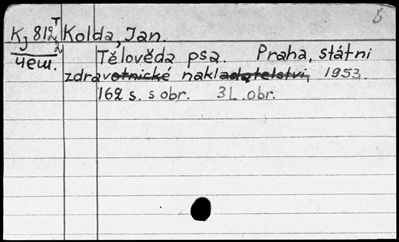 5
Kj 812 T/2 Kolda, Jan.
чеш. Tělověda psa. Praha, státni
zdravotnické nakladatelstvi, 1953.
162 s. s obr. 3 L. obr.